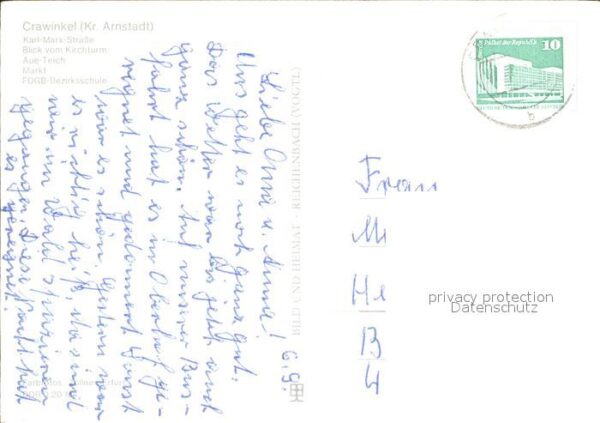 Crawinkel (Kr. Arnstadt)
Karl-Marx-Straße
Blick vom Kirchturm
Aue-Teich
Markt
FDGB-Bezirksschule
Palast der Republik
10
6.9.
Liebe Oma u. Anne!
Uns geht es noch ganz gut.
Das Wetter war bis jetzt auch
ganz schön. Auf unserer Bus-
fahrt hat es in Oberhof ge-
regnet und gedonnert. Sonst
war es schön. Gestern war
es richtig heiß, da sind
wir im Wald spazieren
gegangen. Diese Nacht hat
es geregnet.
BILD UND HEIMAT REICHENBACH (VOGTL)
Frau
M
He
B
4
privacy protection
Datenschutz